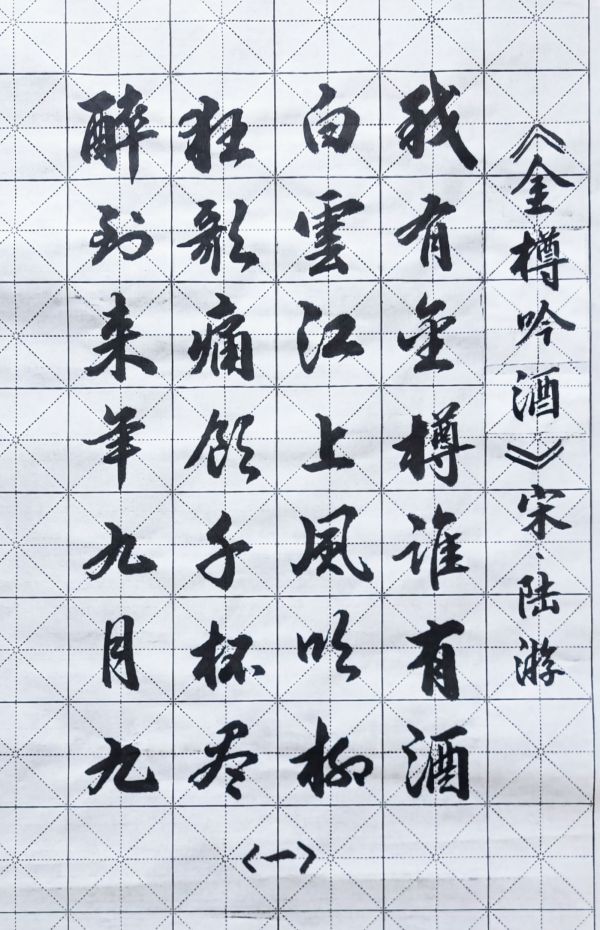 《金樽吟酒》宋、陆游
我有金樽谁有酒
白雲江上風吹柳
狂歌痛饮千杯尽
醉到来年九月九
〈一〉